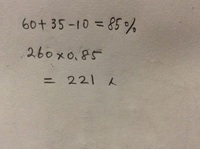 60+35-10=85%
260×0.85
= 221